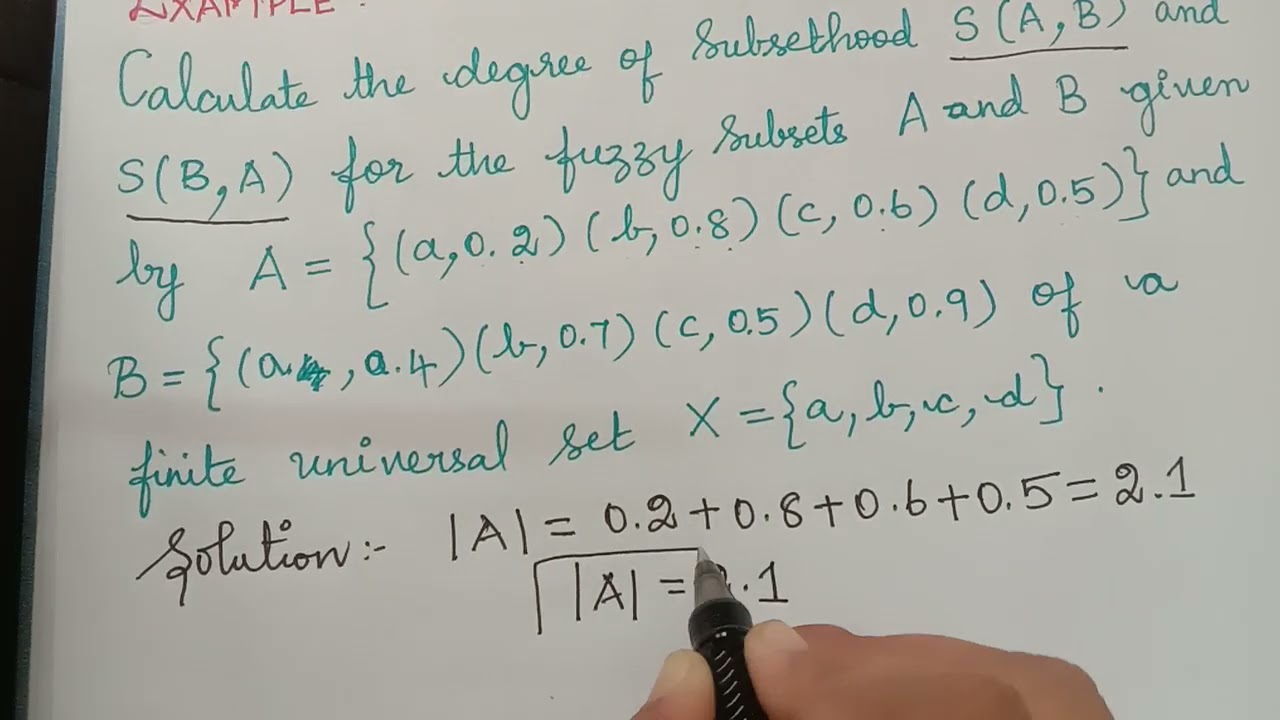 EXAMPLE :
Calculate the degree of subsethood S(A,B) and
S(B,A) for the fuzzy subsets A and B given
by A = {(a,0.2)(b,0.8)(c,0.6)(d,0.5)} and
B = {(a, 0.4)(b,0.7)(c,0.5)(d,0.9) of a
finite universal set X = {a, b, c, d}.
Solution:- |A| = 0.2+0.8+0.6+0.5=2.1
|A| = .1